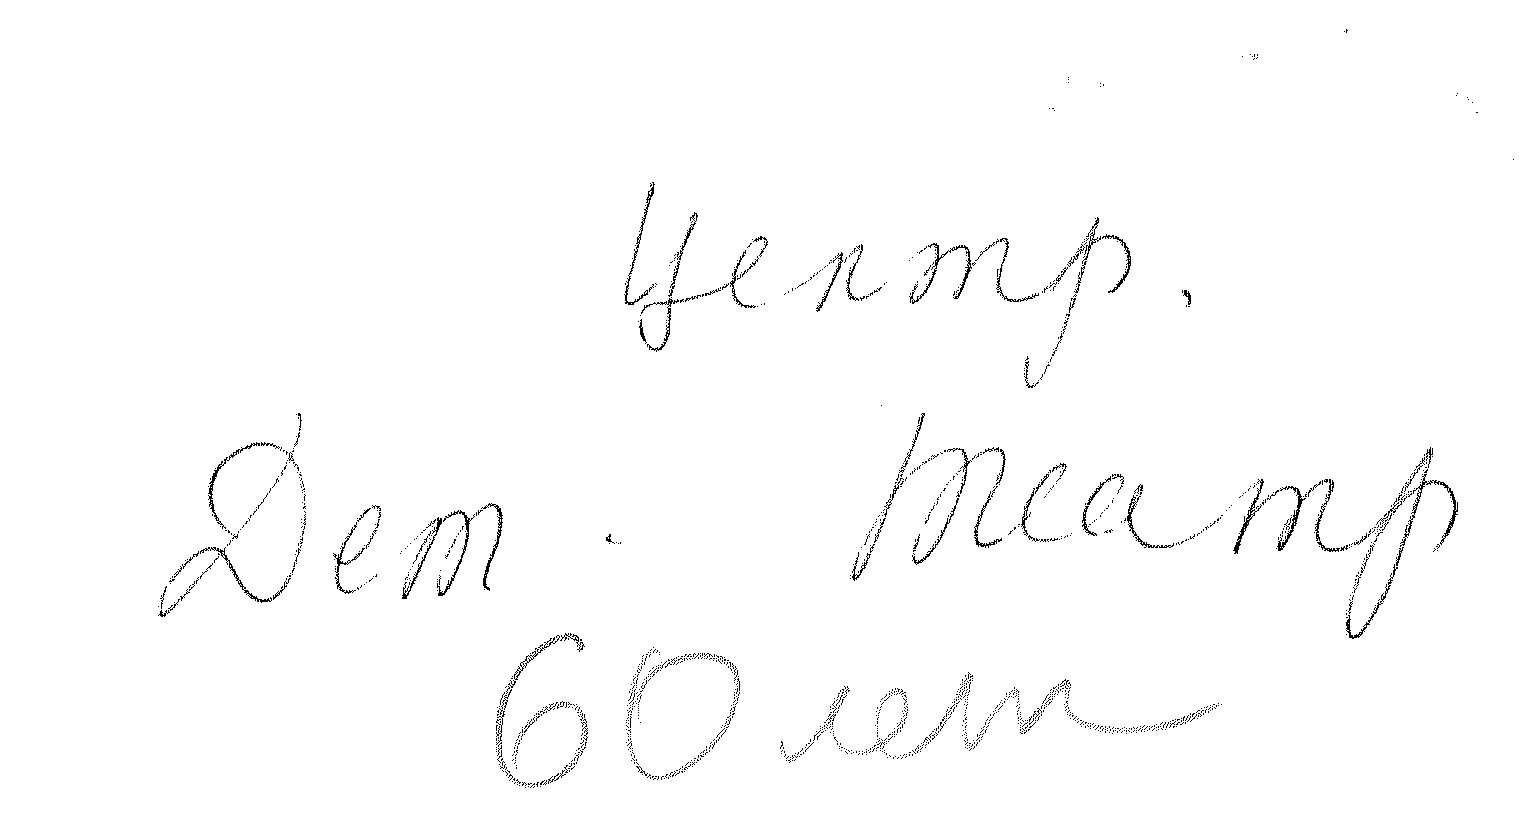 Центр.
Дет. театр
60 лет